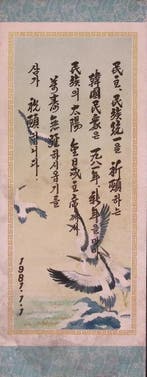 民主、民族統一을 祈願하는
韓國民衆은 一九八一年 新年을
民族의 太陽 金日成主席께서
萬壽無疆하시옵기를
삼가 祝願합니다.
1981.1.1